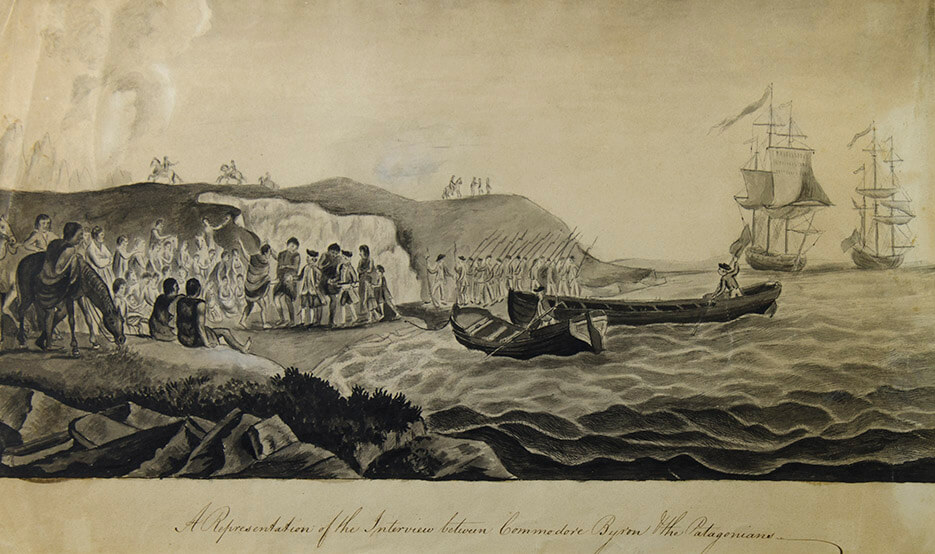 A Representation of the Interview between Commodore Byron & the Patagonians